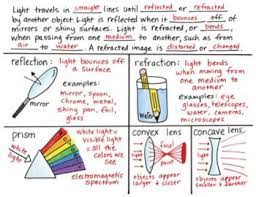 Light travels in straight lines until reflected or refracted
by another object. Light is reflected when it bounces off of
mirrors or shiny surfaces. Light is refracted, or bends,
when passing from one medium to another, such as from
air to water. A refracted image is distorted or changed.
reflection: light bounces off
a surface
examples:
mirror, spoon,
chrome, metal,
shiny pan, foil,
glass
mirror
refraction: light bends
when moving from
one medium to
another
examples:
eye glasses,
telescopes,
water, cameras,
eyes
prism
white light =
all the colors
we see
visible
light
electromagnetic
spectrum
convex lens
objects appear
larger + closer
concave lens
objects appear
smaller + farther